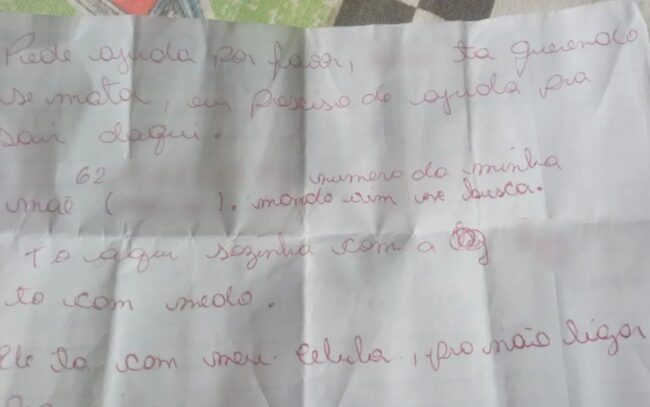 Pede ajuda por favor, ta querendo
se mata, eu preciso de ajuda pra
sair daqui.
62 numero da minha
mãe ( ). manda vim me busca.
To aqui sozinha com a
to com medo.
Ele ta com meu celula, pra não ligar